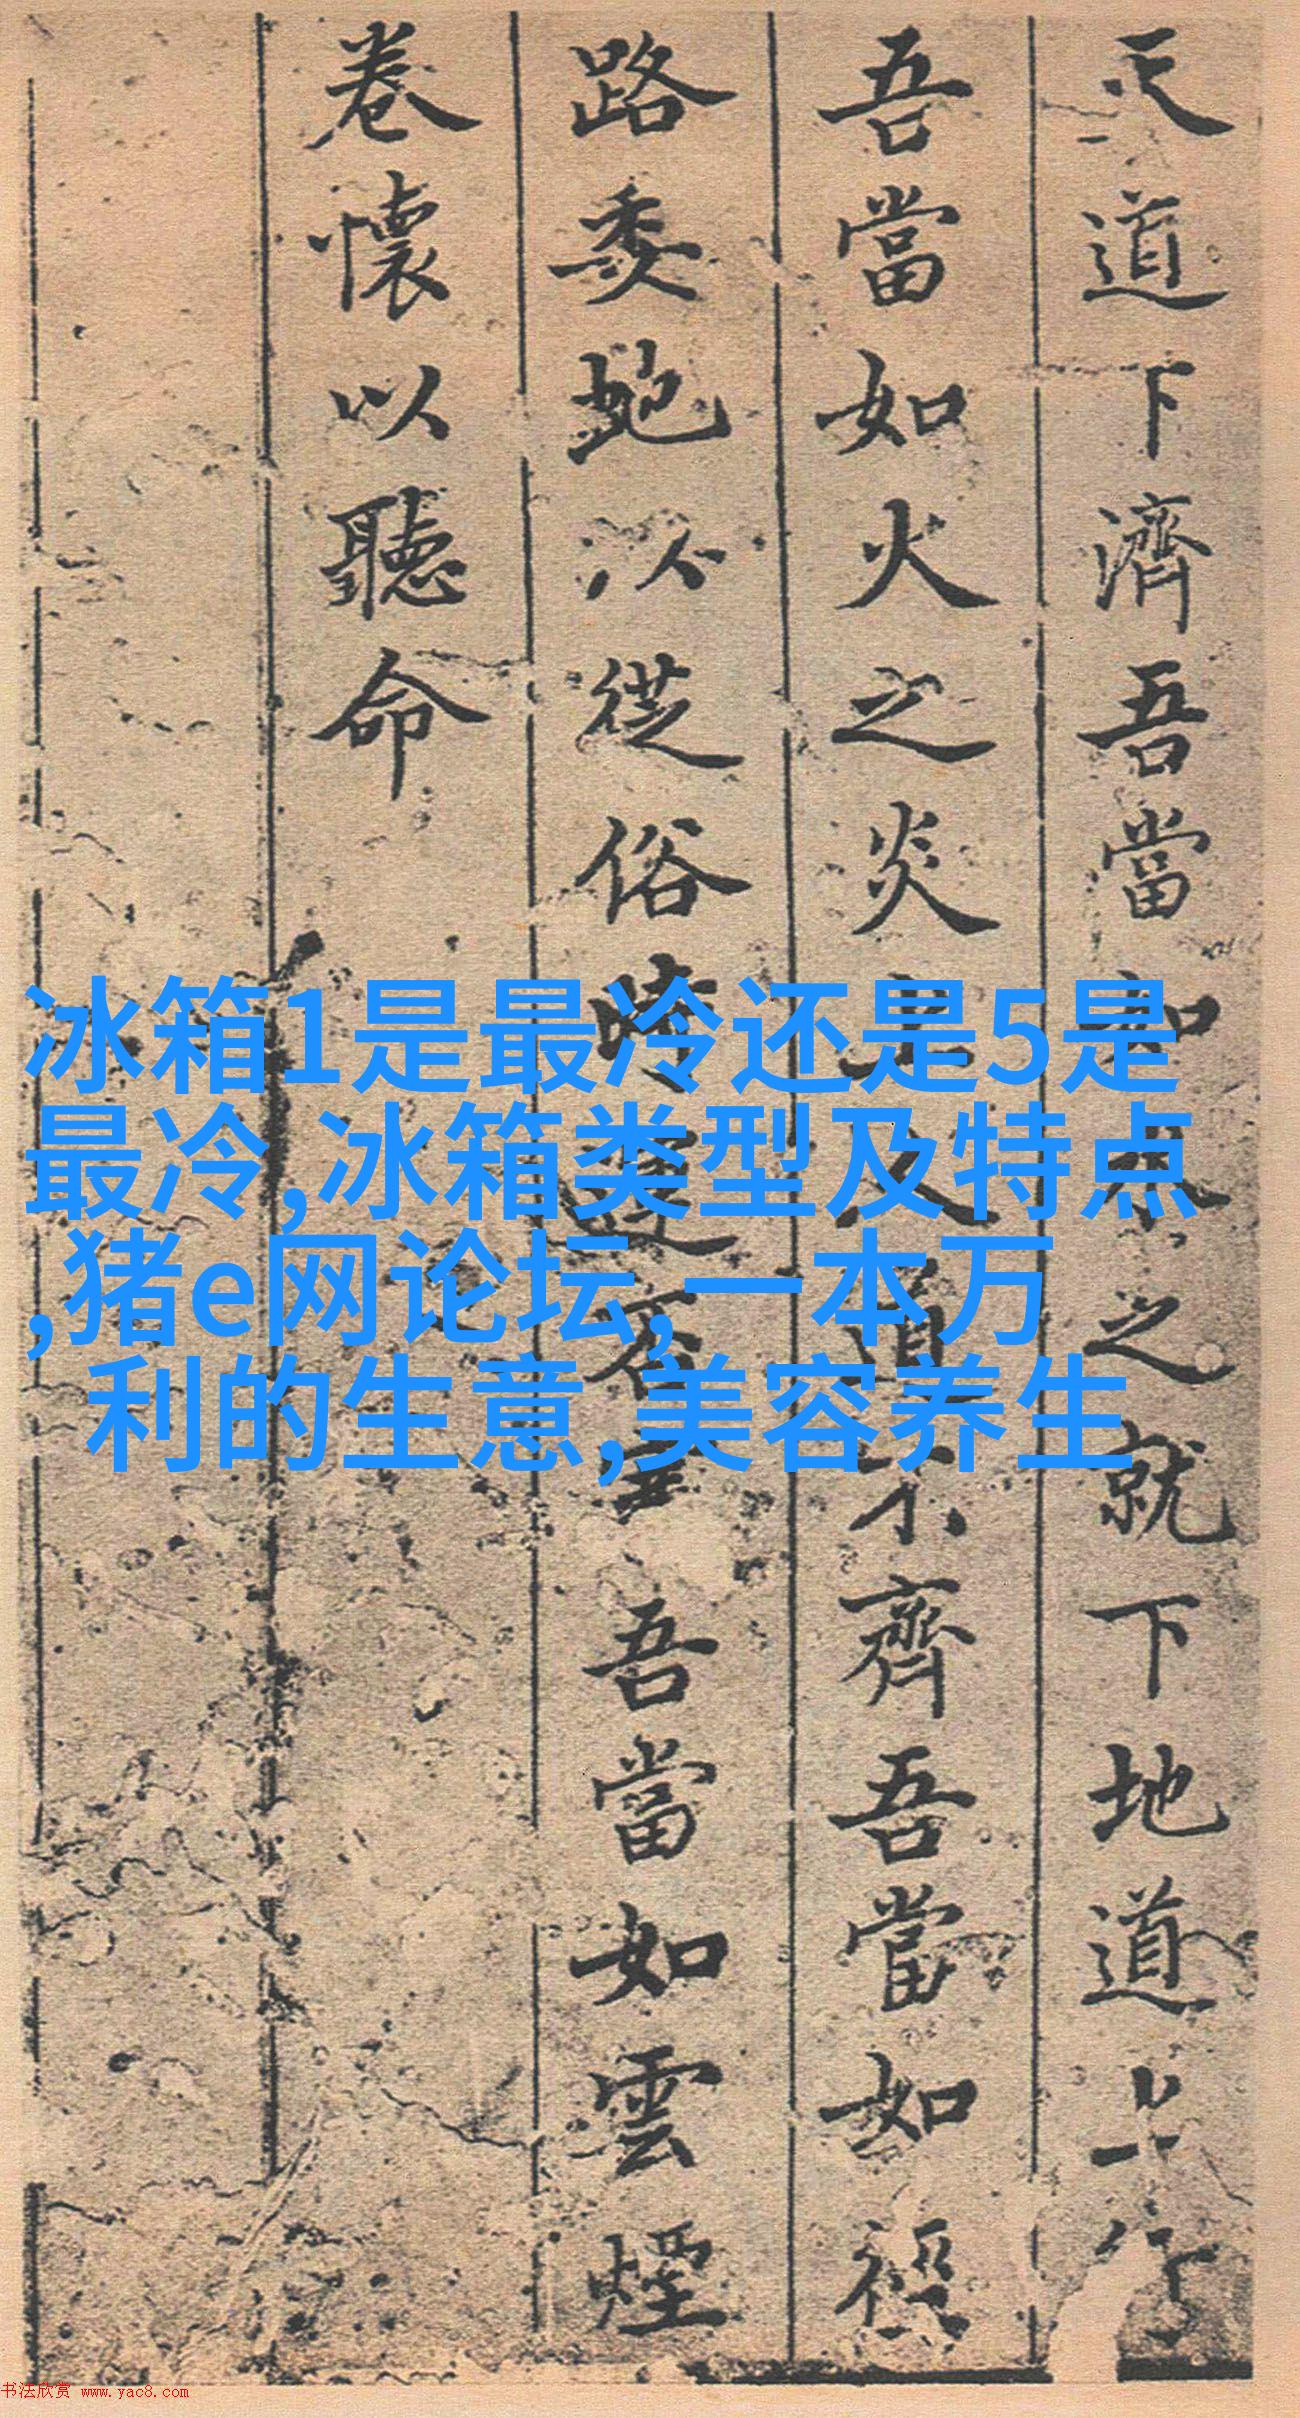 天道下濟吾當如水之就下地道上行
吾當如火之炎上人道不齊吾當如
路委虵以從俗時吾當如雲煙
卷懷以聽命
冰箱1是最冷还是5是
最冷,冰箱类型及特点
,猪e网论坛,一本万
利的生意,美容养生
书法欣赏 www.yac8.com